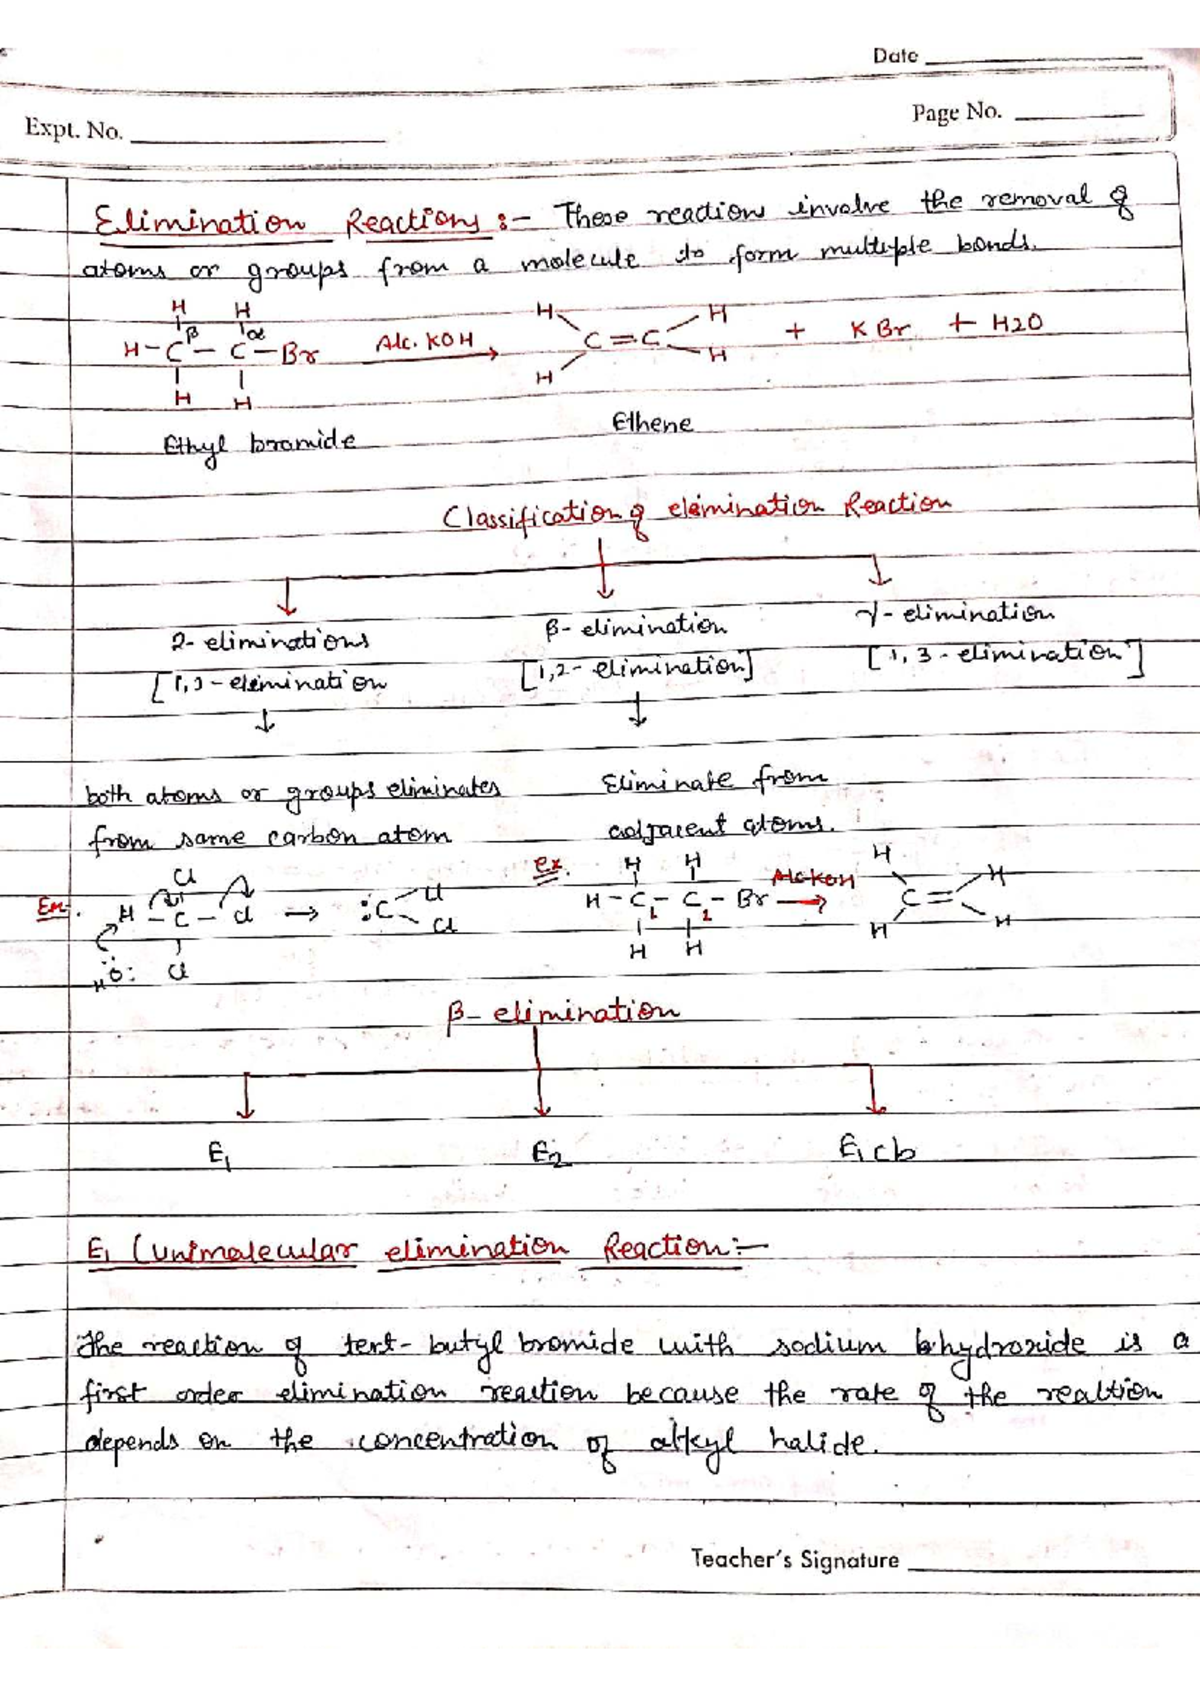 Date
Expt. No.
Page No.
Elimination Reactions :- These reactions involve the removal of
atoms or groups from a molecule to form multiple bonds.
H H
β α
H - C - C - Br Alc. KOH C = C + KBr + H2O
H H
H H
H H
Ethyl bromide
Ethene
Classification of elimination Reaction
2- eliminations β- elimination γ- elimination
[1,1 - elimination [1,2- elimination] [1, 3 - elimination]
both atoms or groups eliminates Eliminate from
from same carbon atom adjacent atoms.
Cl
Ex. H - C - Cl → :C Cl
Cl
HÖ: Cl
Ex. H H
H - C - C - Br Alc KOH C = C
1 2
H H
H H
H H
β- elimination
E1 E2 E1 cb
E1 (unimolecular elimination Reaction:-
The reaction of tert- butyl bromide with sodium hydroxide is a
first order elimination reaction because the rate of the reaction
depends on the concentration of alkyl halide.
Teacher's Signature